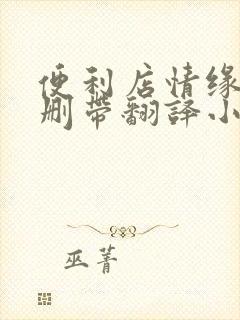 便利店情缘
删带翻译小
巫菁